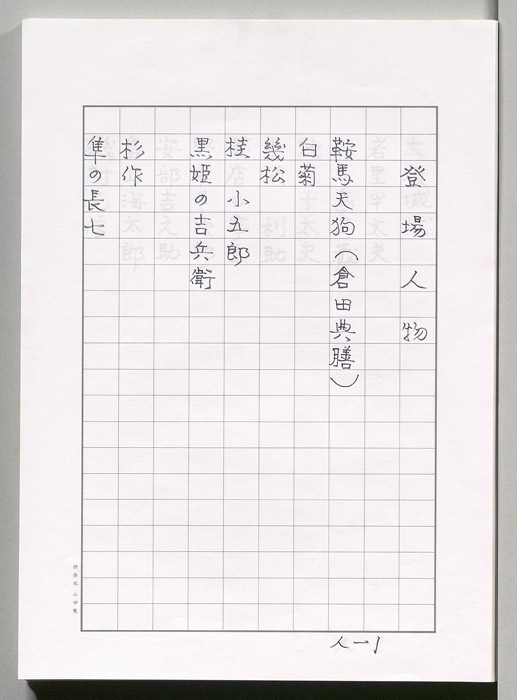 登場人物
鞍馬天狗(倉田典膳)
白菊
幾松
桂小五郎
黒姫の吉兵衛
杉作
隼の長七
人一1
神楽坂 山田製